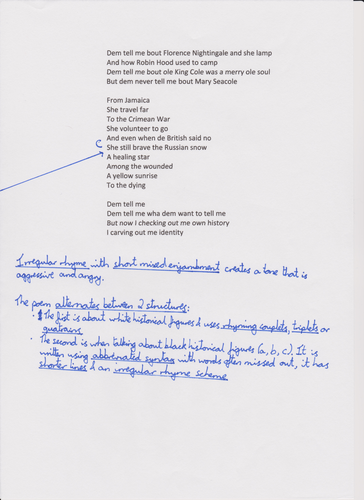 Dem tell me bout Florence Nightingale and she lamp
And how Robin Hood used to camp
Dem tell me bout ole King Cole was a merry ole soul
But dem never tell me bout Mary Seacole
From Jamaica
She travel far
To the Crimean War
She volunteer to go
And even when de British said no
She still brave the Russian snow
A healing star
Among the wounded
A yellow sunrise
To the dying
Dem tell me
Dem tell me wha dem want to tell me
But now I checking out me own history
I carving out me identity
Irregular rhyme with short mixed enjambment creates a tone that is
aggressive and angry.
The poem alternates between 2 structures:
The first is about white historical figures & uses rhyming couplets, triplets or
quatrains
• The second is when talking about black historical figures (a, b, c). It is
written using abbreviated syntax with words often missed out, it has
shorter lines & an irregular rhyme scheme